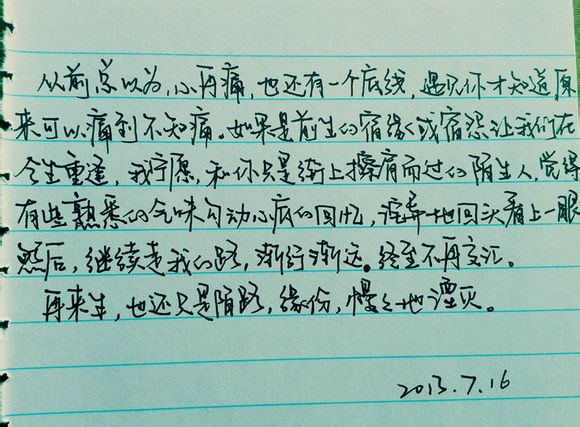 从前总以为,心再痛,也还有一个底线,遇见你才知道原
来可以痛到不知痛。如果是前生的宿缘或宿怨让我们在
今生重逢,我宁愿,和你只是街上擦肩而过的陌生人,觉得
有些熟悉的气味勾动心底的回忆,诧异地回头看上一眼
然后,继续走我的路,渐行渐远。终至不再交汇。
再来生,也还只是陌路,缘份,慢慢地湮灭。
2013.7.16